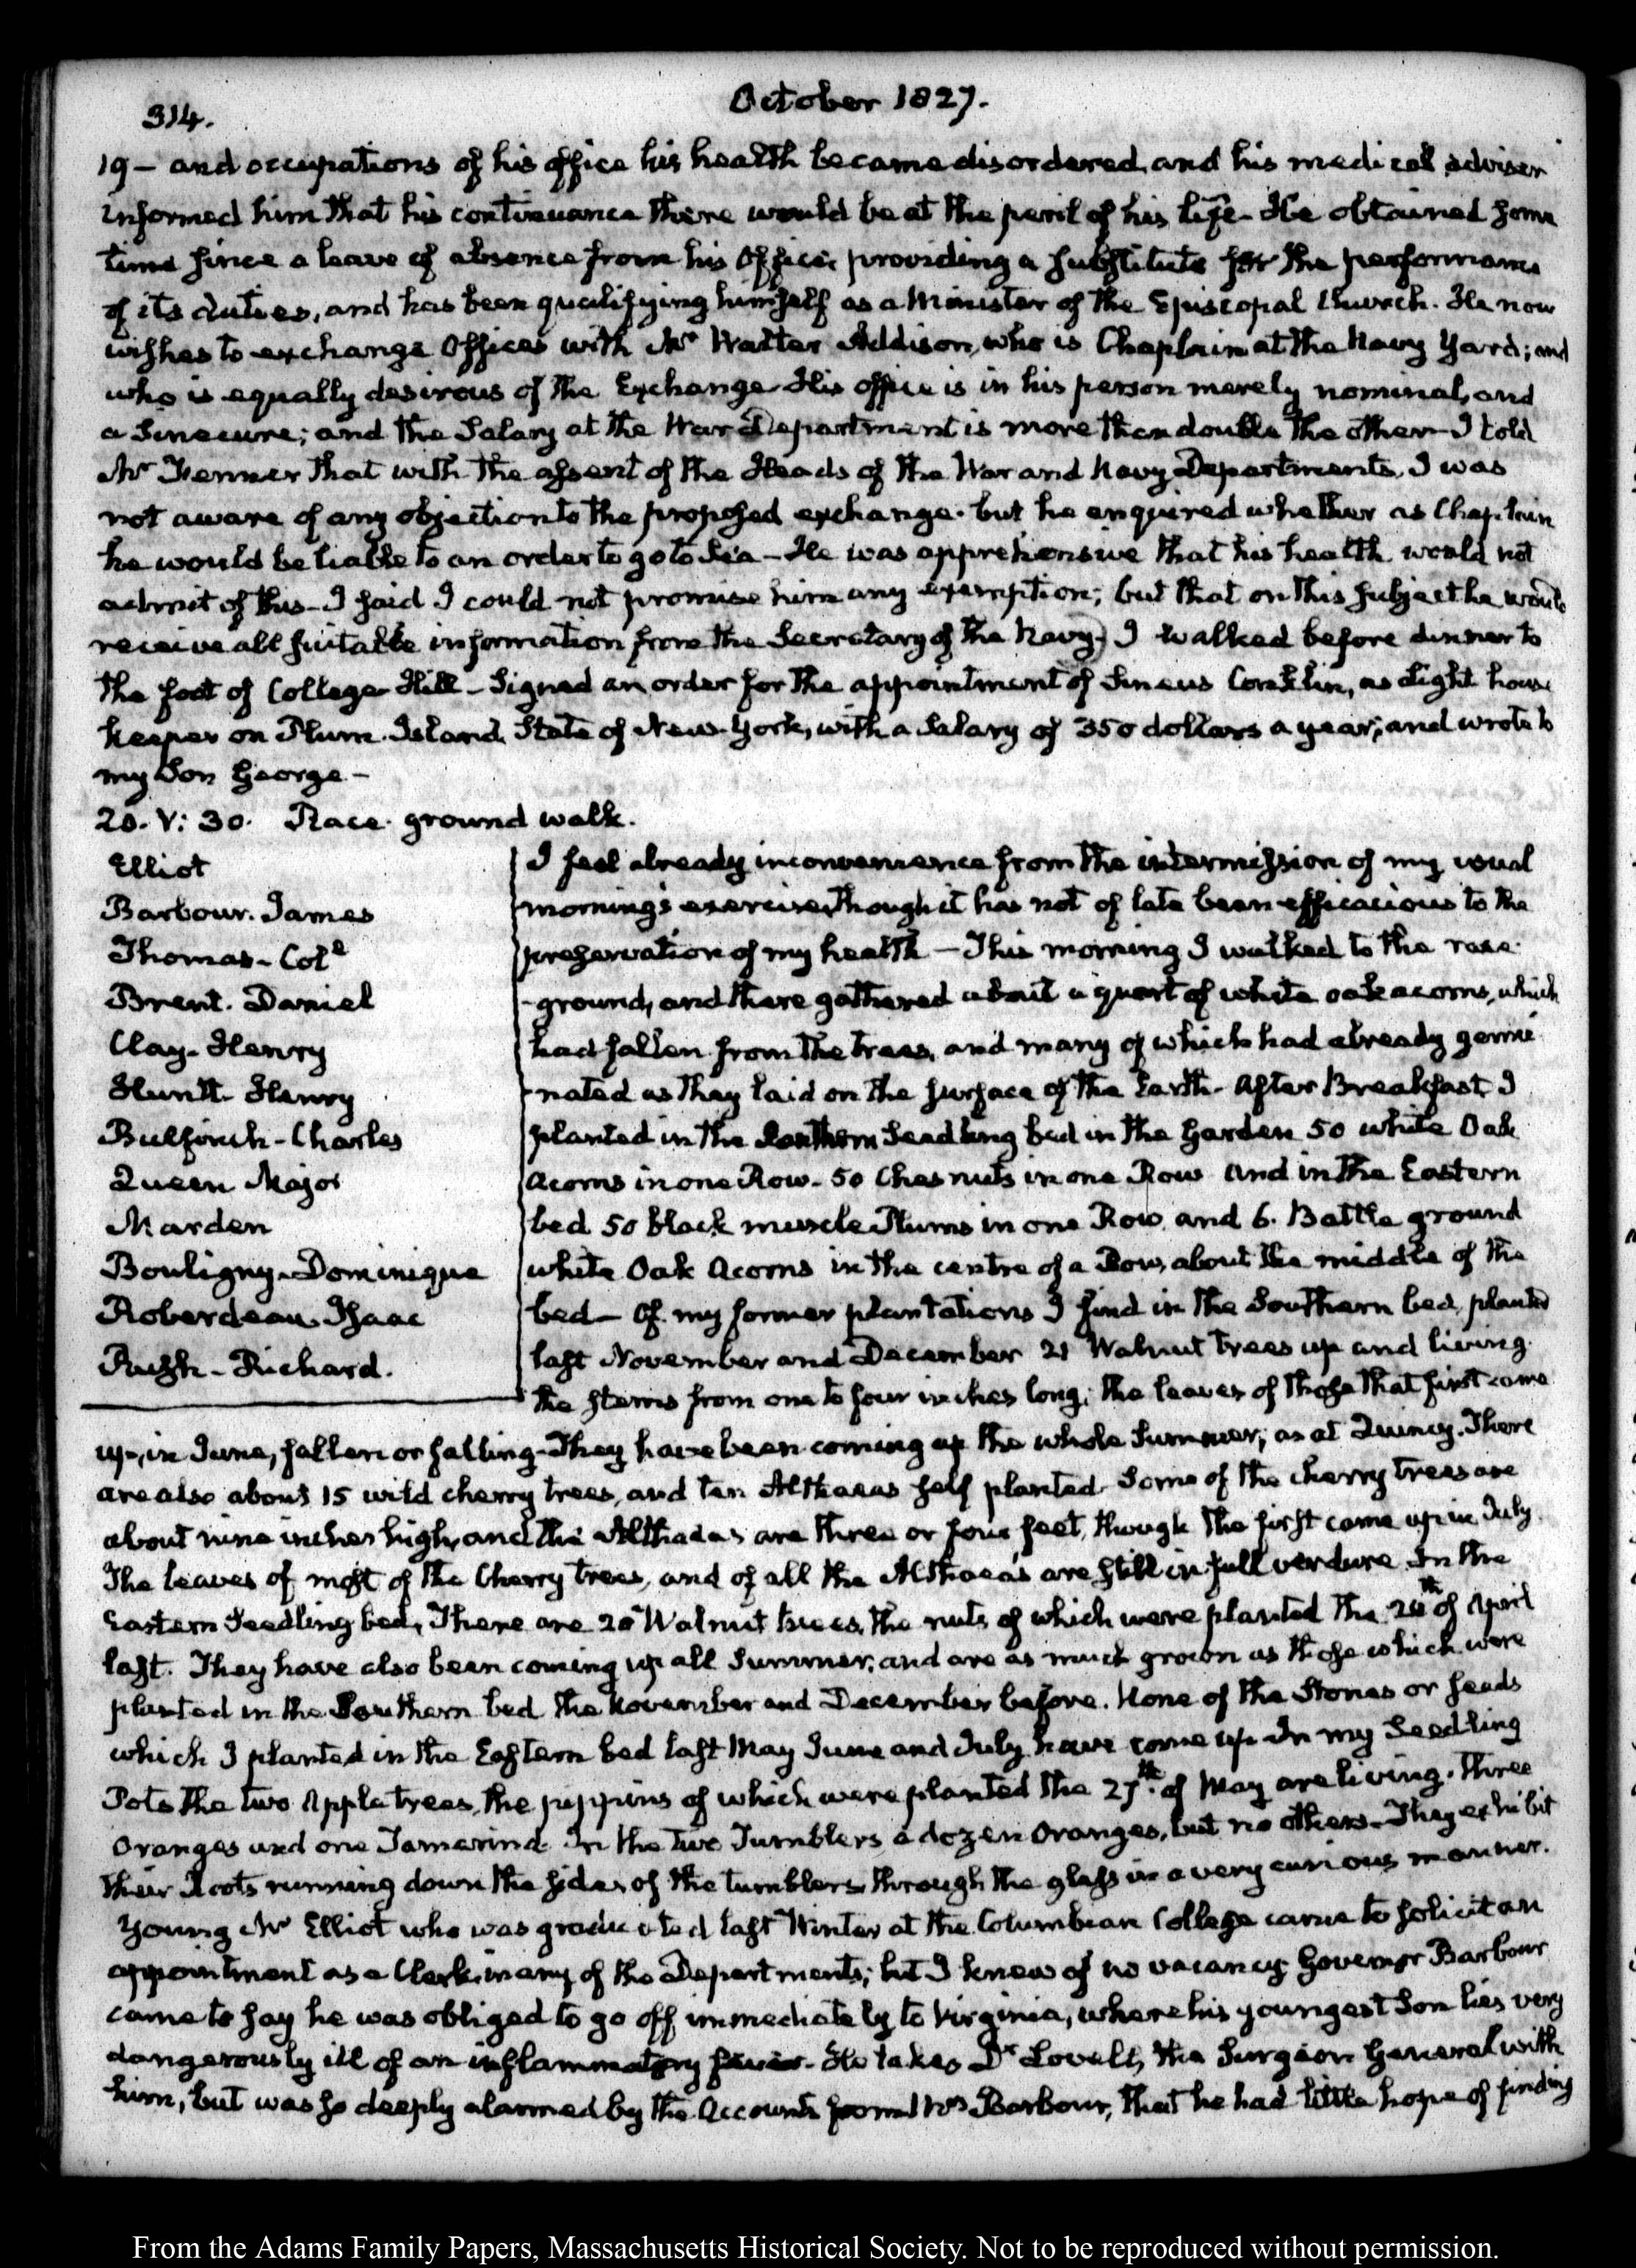 314.
October 1827.
19 – and occupations of his office his health became disordered, and his medical adviser
informed him that his continuance there would be at the peril of his life – He obtained some
time since a leave of absence from his Office, providing a substitute for the performance
of its duties, and has been qualifying himself as a Minister of the Episcopal Church. He now
wishes to exchange Offices with Mr Walter Addison, who is Chaplain at the Navy Yard; and
who is equally desirous of the Exchange – His office is in his person merely nominal, and
a Sinecure; and the Salary at the War Department is more than double the other – I told
Mr Fenner that with the assent of the Heads of the War and Navy Departments, I was
not aware of any objection to the proposed exchange. but he enquired whether as Chaplain
he would be liable to an order to go to Sea – He was apprehensive that his health would not
admit of this – I said I could not promise him any exemption; but that on this subject he would
receive all suitable information from the Secretary of the Navy. I walked before dinner to
the foot of College Hill – Signed an order for the appointment of Sineus Conklin, as Light house
keeper on Plum Island, State of New-York, with a Salary of 350 dollars a year; and wrote to
my Son George –
20. V: 30. Race ground walk.
Elliot
Barbour. James
Thomas – Coll
Brent. Daniel
Clay – Henry
Huntt – Henry
Bulfinch – Charles
Queen Major
Marden
Bouligny – Dominique
Roberdeau. Isaac
Rush – Richard.
I feel already inconvenience from the intermission of my usual
morning's exercise, though it has not of late been efficacious to the
preservation of my health – This morning I walked to the race
-ground, and there gathered about a quart of white oak acorns, which
had fallen from the trees, and many of which had already germi
-nated as they laid on the surface of the Earth – After Breakfast I
planted in the Southern Seedling bed in the Garden 50 white Oak
Acorns in one Row – 50 Chesnuts in one Row and in the Eastern
bed 50 black muscle Plums in one Row, and 6. Battle ground
white Oak Acorns in the centre of a Row, about the middle of the
bed – Of my former plantations I find in the Southern bed, planted
last November and December 21 Walnut trees up and living.
the stems from one to four inches long; the leaves of those that first came
up, in June, fallen or falling – They have been coming up the whole Summer, as at Quincy. There
are also about 15 wild cherry trees, and ten Althaeas self planted – Some of the cherry trees are
about nine inches high, and the Althaeas are three or four feet, though the first came up in July.
The leaves of most of the Cherry trees, and of all the Althaea's are still in full verdure. In the
Eastern Seedling bed, There are 20 Walnut trees, the nuts of which were planted the 24th of April
last. They have also been coming up all Summer, and are as much grown as those which were
planted in the Southern bed the November and December before. None of the Stones or seeds
which I planted in the Eastern bed last May June and July have come up – In my Seedling
Pots the two Apple trees, the pippins of which were planted the 27th of May are living. three
Oranges and one Tamarind. In the two Tumblers a dozen Oranges, but no others – They exhibit
their Roots running down the sides of the tumblers through the glass in a very curious manner.
Young Mr Elliot who was graduated last Winter at the Columbian College came to solicit an
appointment as a Clerk in any of the Departments; but I knew of no vacancy. Governor Barbour
came to say he was obliged to go off immediately to Virginia, where his youngest Son lies very
dangerously ill of an inflammatory fever – He takes Dr Lovell, the Surgeon General with
him, but was so deeply alarmed by the Accounts from Mrs Barbour, that he had little hope of finding
From the Adams Family Papers, Massachusetts Historical Society. Not to be reproduced without permission.